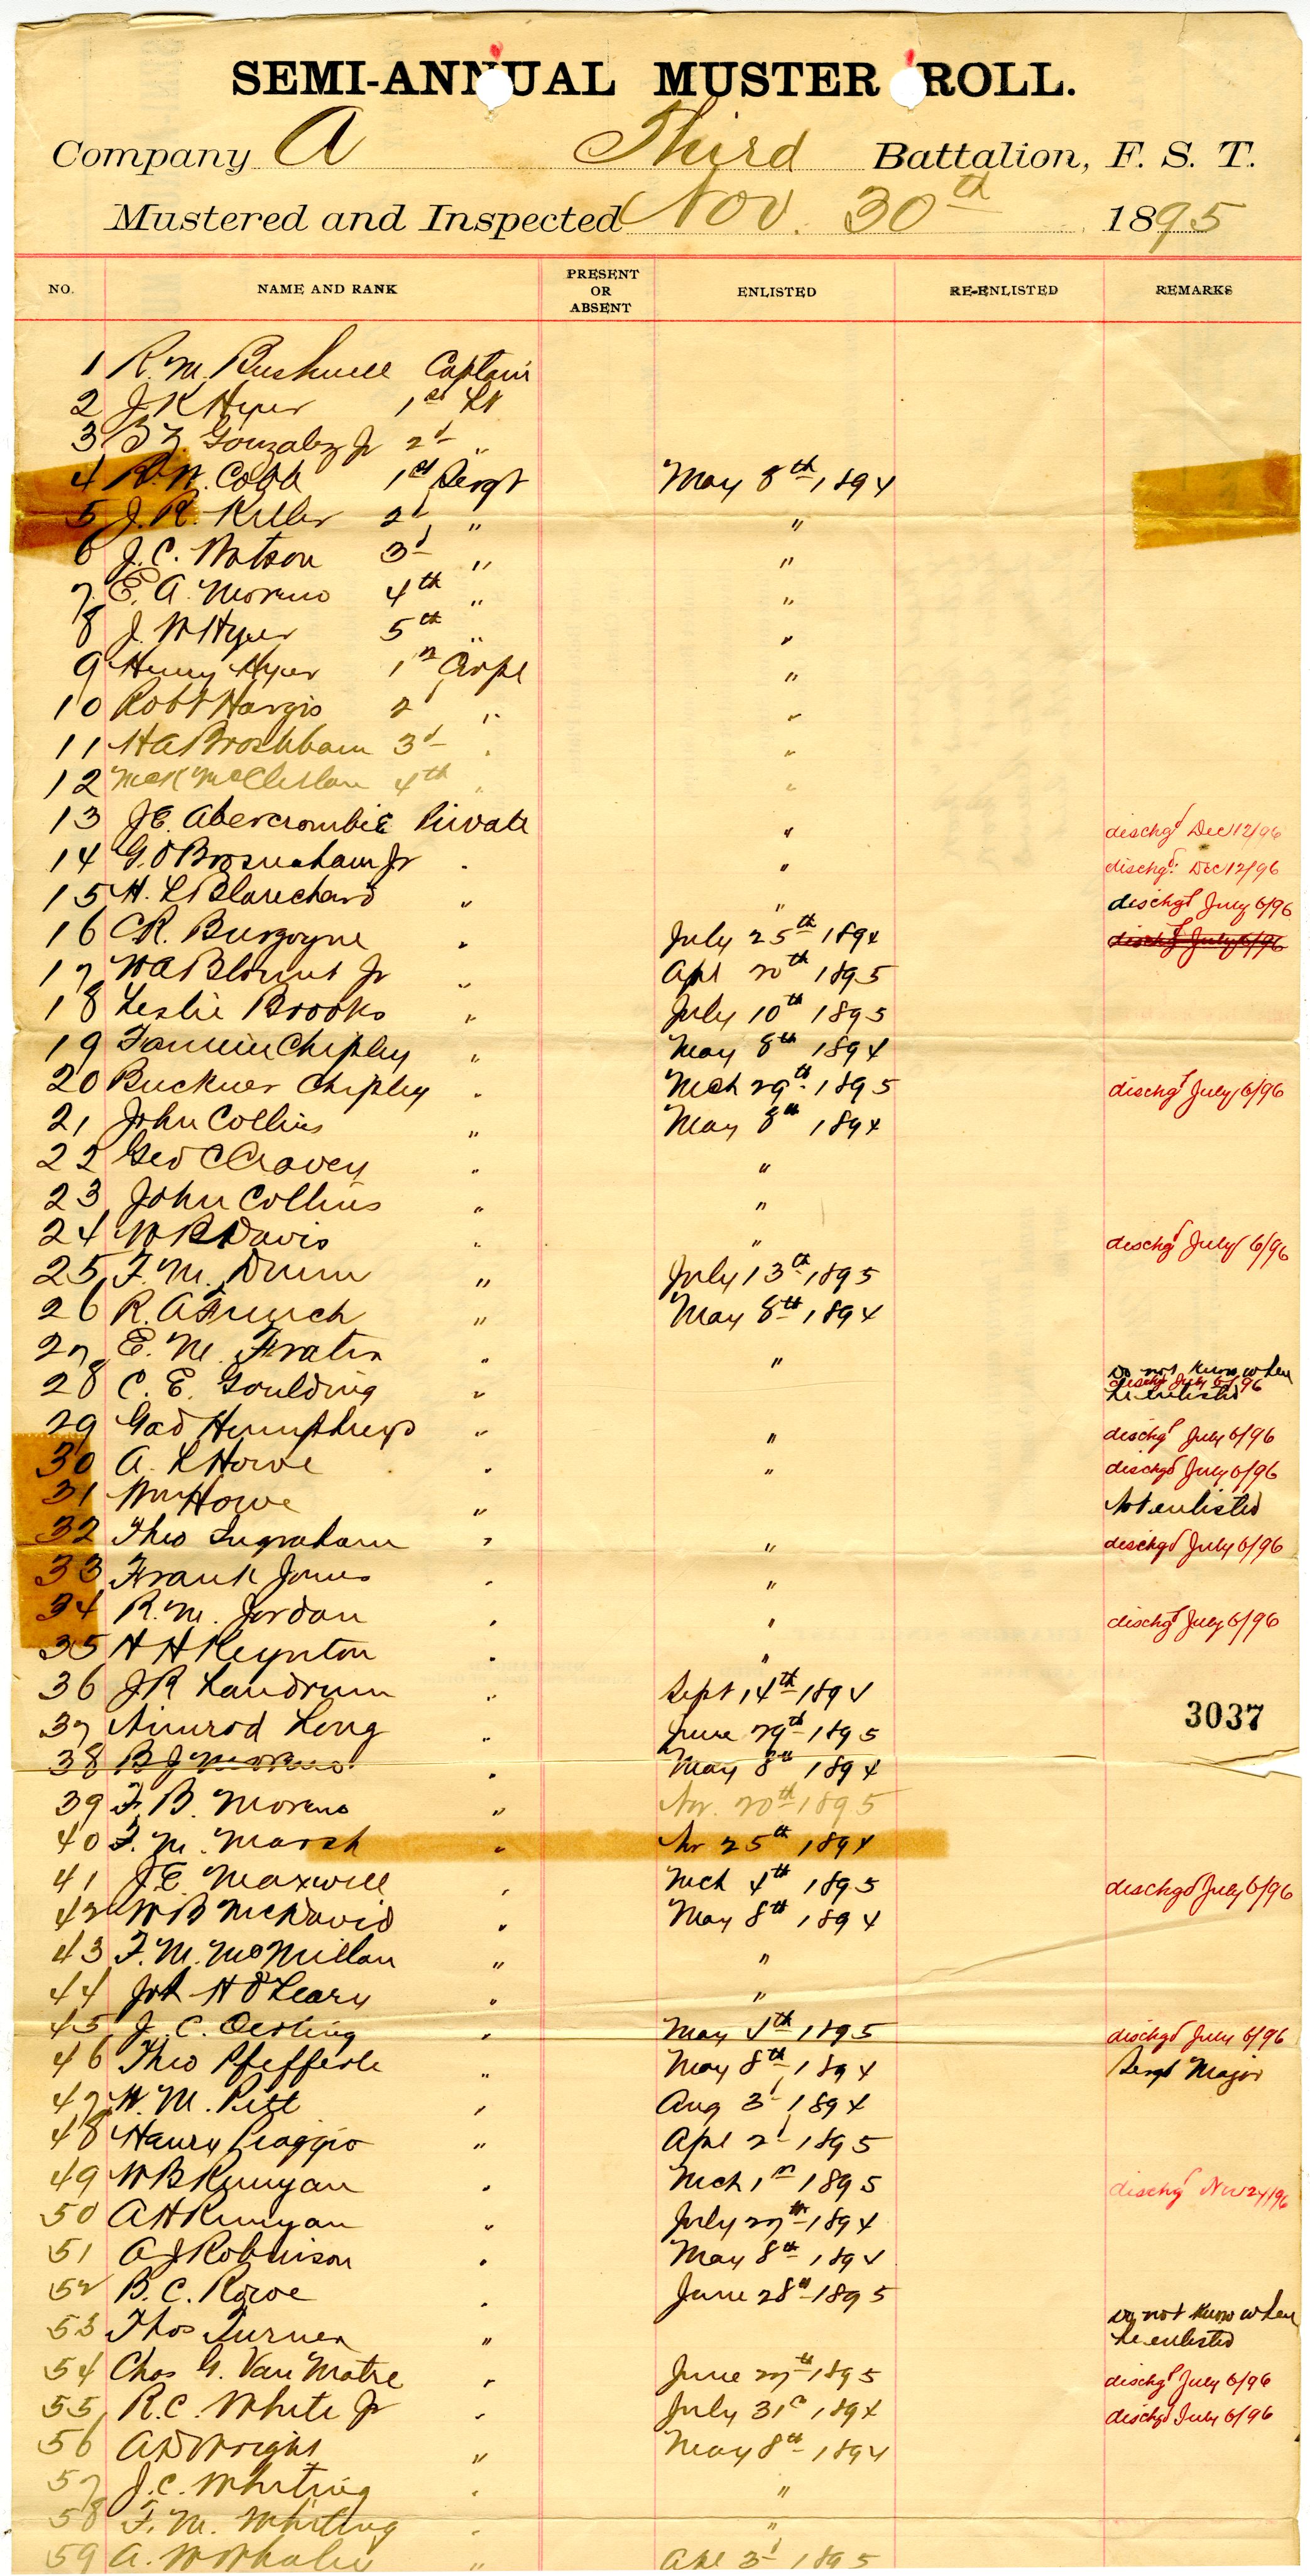 SEMI-ANNUAL MUSTER ROLL.
Company A Third Battalion, F. S. T.
Mustered and Inspected Nov. 30th 1895
NO. NAME AND RANK PRESENT OR ABSENT ENLISTED RE-ENLISTED REMARKS
1 R. M. Bushnell Captain
2 J K Hyer 1st Lt
3 Gonzalez Jr 2d "
4 R. W. Cobb 1st Sergt May 8th 1894
5 J. R. Keller 2d " "
6 J. C. Watson 3d " "
7 E. A. Moreno 4th " "
8 J. W Hyer 5th " "
9 Henry Hyer 1st Corpl "
10 Robt Hargis 2d " "
11 H A Brosnham 3d " "
12 McClellan 4th " "
13 J E. Abercrombie Private " dischgd Dec 12/96
14 G. O Brosnaham Jr " " dischgd Dec 12/96
15 H. L Blanchard " " dischgd July 6/96
16 C R. Burgoyne " July 25th 1894 dischgd July 6/96
17 W A Blount Jr " Apl 20th 1895
18 Leslie Brooks " July 10th 1895
19 Fannin Chipley " May 8th 1894
20 Buckner Chipley " Mch 29th 1895 dischgd July 6/96
21 John Collins " May 8th 1894
22 Geo C Cravey " "
23 John Collins " "
24 W B Davis " " dischgd July 6/96
25 F. M. Dunn " July 13th 1895
26 R. A French " May 8th 1894
27 E. M. Frater " "
28 C. E. Goulding " Do not know when he enlisted dischgd July 6/96
29 Gad Humphreys " " dischgd July 6/96
30 A. L Howe " " dischgd July 6/96
31 Wm Howe " Not enlisted
32 Theo Ingraham " " dischgd July 6/96
33 Frank Jones " "
34 R. M. Jordan " " dischgd July 6/96
35 H H Keynton " "
36 J R Landrum " Sept 14th 1894
3037
37 Nimrod Long " June 29th 1895
38 B J Moreno " May 8th 1894
39 F. B. Moreno " Nov. 20th 1895
40 F. M. Marsh " Nov 25th 1894
41 J. E. Maxwell " Mch 4th 1895 dischgd July 6/96
42 W B McDavid " May 8th 1894
43 F. M. McMillan " "
44 H O'Leary " "
45 J. C. Oesting " May 4th 1895 dischgd July 6/96
46 Theo Pfefferle " May 8th 1894 Sergt Major
47 W. M. Pitt " Aug 3d 1894
48 Haury Piaggio " Apl 2d 1895
49 W B Runyan " Mch 1st 1895 dischgd Nov 24/96
50 A H Runyan " July 27th 1894
51 A J Robinson " May 8th 1894
52 B. C. Rowe " June 28th 1895
53 Thos Turner " Do not know when he enlisted
54 Chas G. Van Matre " June 27th 1895 dischgd July 6/96
55 R. C. White Jr " July 31st 1894 dischgd July 6/96
56 A D Wright " May 8th 1894
57 J. C. Whiting " "
58 F. M. Whiting " "
59 A. W Whalie " Apl 3d 1895